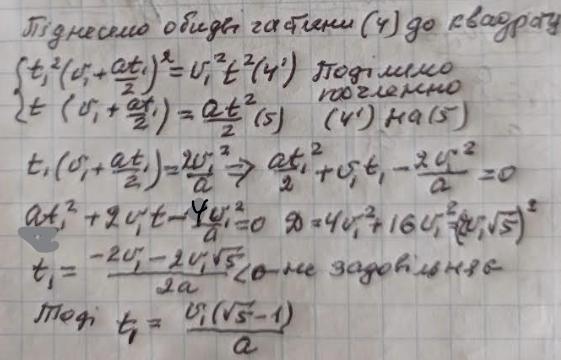 Піднесемо обидві частини (4) до квадрату
{ t₁²(v₁ + at₁/2)² = v₁²t² (4') Поділимо
{ t (v₁ + at₁/2) = at²/2 (5) почленно (4') на (5)
t₁(v₁ + at₁/2) = 2v₁²/a ⇒ at₁²/2 + v₁t₁ - 2v₁²/a = 0
at₁² + 2v₁t - 4v₁²/a = 0 D = 4v₁² + 16v₁² = (2v₁√5)²
t₁ = (-2v₁ - 2v₁√5)/2a < 0 - не задовільняє
Тоді t₁ = v₁(√5 - 1)/a